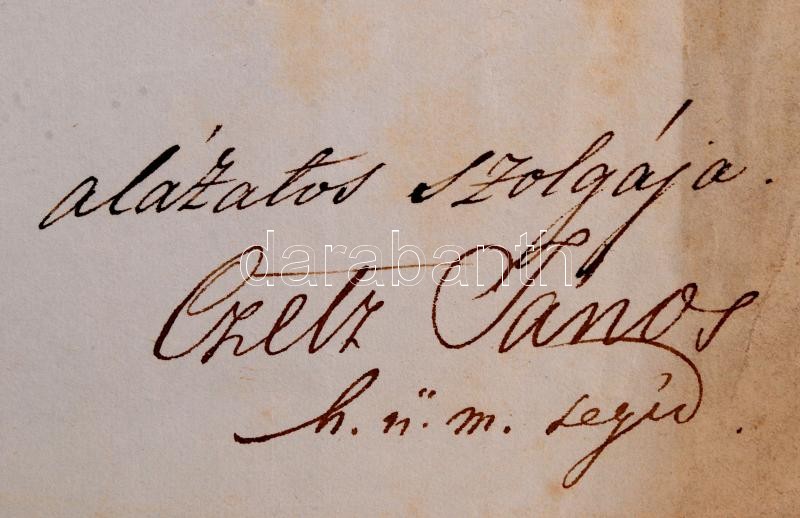 alázatos szolgája.
darabanth
Czelz János
h. ü. m. segéd.